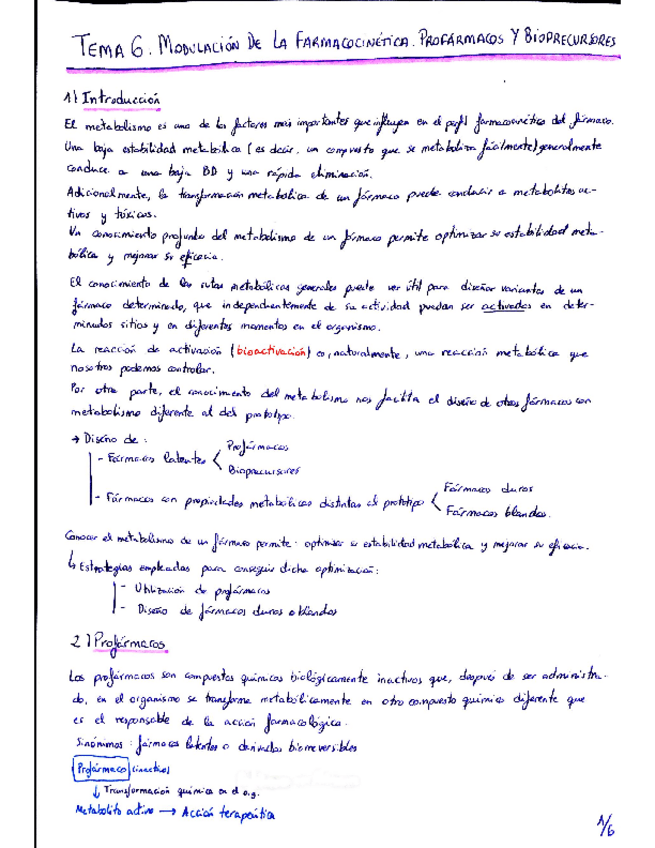 TEMA 6. MODULACIÓN DE LA FARMACOCINÉTICA. PROFÁRMACOS Y BIOPRECURSORES
1) Introducción
El metabolismo es uno de los factores más importantes que influyen en el perfil farmacocinético del fármaco.
Una baja estabilidad metabólica (es decir, un compuesto que se metaboliza fácilmente) generalmente
conduce a una baja BD y una rápida eliminación.
Adicionalmente, la transformación metabólica de un fármaco puede conducir a metabolitos ac-
tivos y tóxicos.
Un conocimiento profundo del metabolismo de un fármaco permite optimizar su estabilidad meta-
bólica y mejorar su eficacia.
El conocimiento de las rutas metabólicas generales puede ser útil para diseñar variantes de un
fármaco determinado, que independientemente de su actividad puedan ser activados en deter-
minados sitios y en diferentes momentos en el organismo.
La reacción de activación (bioactivación) es, naturalmente, una reacción metabólica que
nosotros podemos controlar.
Por otra parte, el conocimiento del metabolismo nos facilita el diseño de otros fármacos con
metabolismo diferente al del prototipo.
→ Diseño de:
- Fármacos latentes < Profármacos
Bioprecursores
- Fármacos con propiedades metabólicas distintas al prototipo < Fármacos duros
Fármacos blandos.
Conocer el metabolismo de un fármaco permite optimizar su estabilidad metabólica y mejorar su eficacia.
↳ Estrategias empleadas para conseguir dicha optimización:
- Utilización de profármacos
- Diseño de fármacos duros o blandos
2) Profármacos
Los profármacos son compuestos químicos biológicamente inactivos que, después de ser administra-
do, en el organismo se transforma metabólicamente en otro compuesto químico diferente que
es el responsable de la acción farmacológica.
Sinónimos: fármacos latentes o derivados biorreversibles
Profármaco (inactivo)
↓ Transformación química en el org.
Metabolito activo → Acción terapéutica
1/6